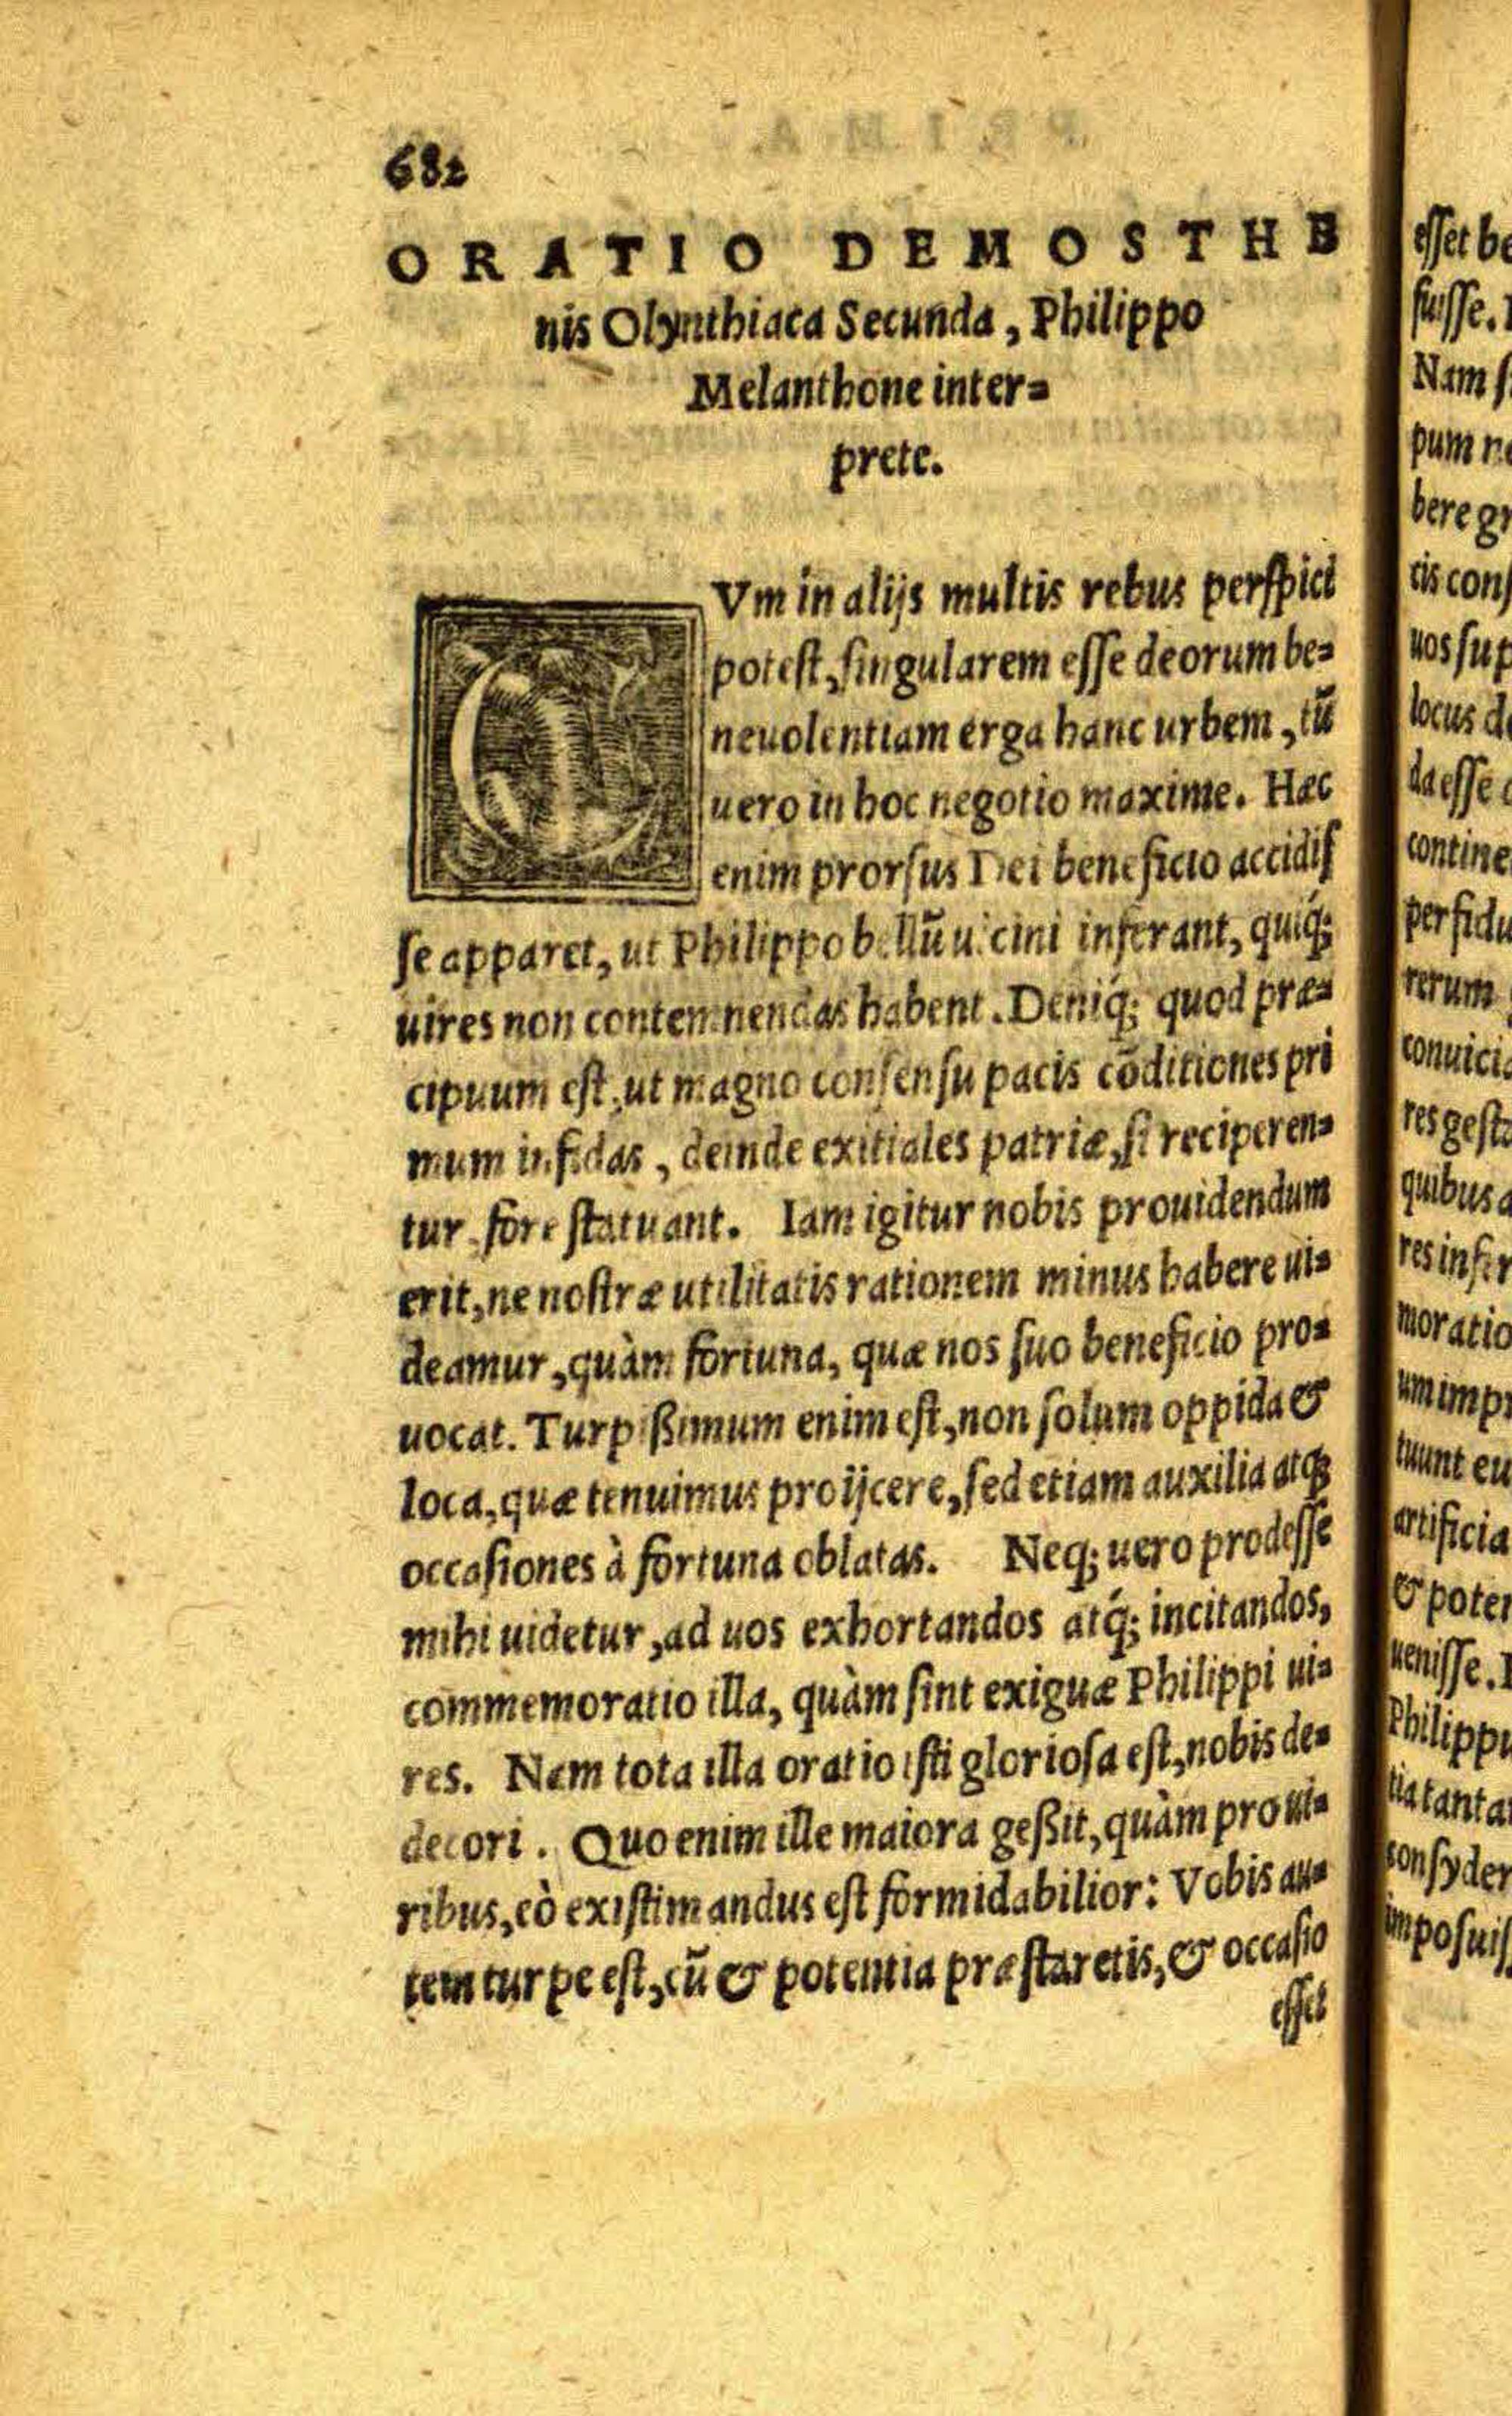 682
ORATIO DEMOSTHE
nis Olynthiaca Secunda, Philippo
Melanthone inter=
prete.
CVm in alijs multis rebus perſpici
poteſt, ſingularem eſſe deorum be=
neuolentiam erga hanc urbem, tũ
uero in hoc negotio maxime. Hæc
enim prorſus Dei beneficio accidiſ
ſe apparet, ut Philippo bellũ uicini inferant, quiq́;
uires non contemnendas habent. Deniq́; quod præ=
cipuum eſt, ut magno conſenſu pacis cõditiones pri
mum infidas, deinde exitiales patriæ, ſi reciperen=
tur, fore ſtatuant. Iam igitur nobis prouidendum
erit, ne noſtræ utilitatis rationem minus habere ui=
deamur, quàm fortuna, quæ nos ſuo beneficio pro=
uocat. Turpißimum enim eſt, non ſolum oppida &
loca, quæ tenuimus proijcere, ſed etiam auxilia atq;
occaſiones à fortuna oblatas. Neq; uero prodeſſe
mihi uidetur, ad uos exhortandos atq́; incitandos,
commemoratio illa, quàm ſint exiguæ Philippi ui=
res. Nam tota illa oratio iſti glorioſa eſt, nobis de=
decori. Quo enim ille maiora geßit, quàm pro ui=
ribus, eò exiſtimandus eſt formidabilior: Vobis au=
tem turpe eſt, cũ & potentia præſtaretis, & occaſio
eſſet
eſſet
fuiſſe.
Nam
pum
bere
cis
uos
locus
da eſſe
perfidu
rerum
res
quibus
res
artificia
& 
ueniſſe.